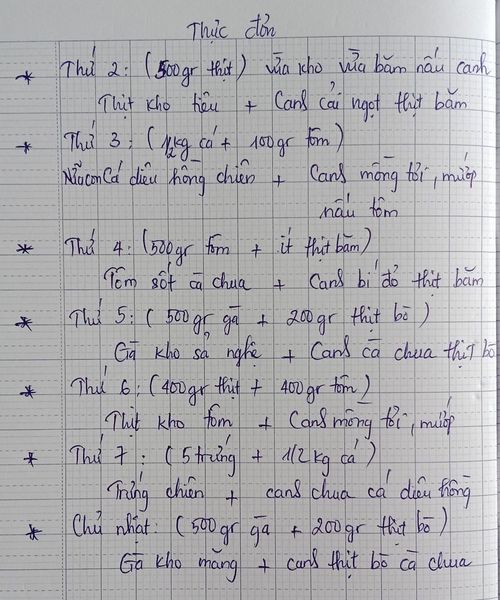 Thực đơn
* Thứ 2: (500gr thịt) vừa kho vừa băm nấu canh
Thịt kho tiêu + Canh cải ngọt thịt băm
* Thứ 3: (1/2kg cá + 100gr tôm)
Nửa con Cá diêu hồng chiên + Canh mồng tơi, mướp
nấu tôm
* Thứ 4: (500gr tôm + ít thịt băm)
Tôm sốt cà chua + Canh bí đỏ thịt băm
* Thứ 5: (500gr gà + 200gr thịt bò)
Gà kho sả nghệ + Canh cà chua thịt bò
* Thứ 6: (400gr thịt + 400gr tôm)
Thịt kho tôm + Canh mồng tơi, mướp
* Thứ 7: (5 trứng + 1/2kg cá)
Trứng chiên + canh chua cá diêu hồng
* Chủ nhật: (500gr gà + 200gr thịt bò)
Gà kho măng + canh thịt bò cà chua